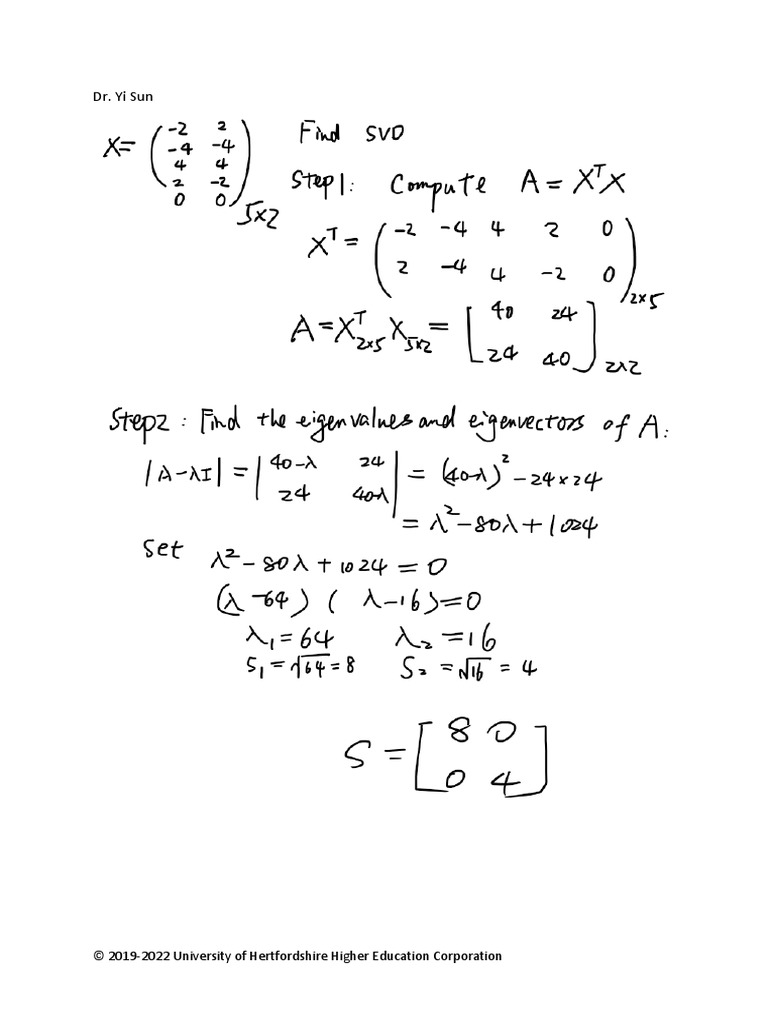 Dr. Yi Sun
X= (-2 2
-4 -4
4 4
2 -2
0 0)5x2
Find SVD
Step1: Compute A = XᵀX
Xᵀ = (-2 -4 4 2 0
2 -4 4 -2 0)2x5
A = Xᵀ2x5 X5x2 = [40 24
24 40]2x2
Step2: Find the eigenvalues and eigenvectors of A:
|A-λI| = |40-λ 24
24 40-λ| = (40-λ)² - 24x24
= λ² - 80λ + 1024
Set λ² - 80λ + 1024 = 0
(λ - 64) ( λ - 16) = 0
λ₁ = 64 λ₂ = 16
S₁ = √64 = 8 S₂ = √16 = 4
S = [8 0
0 4]
© 2019-2022 University of Hertfordshire Higher Education Corporation